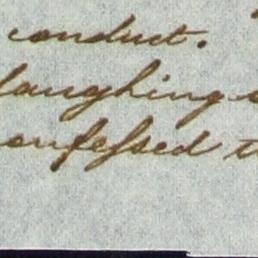 conduct.
laughing
confessed